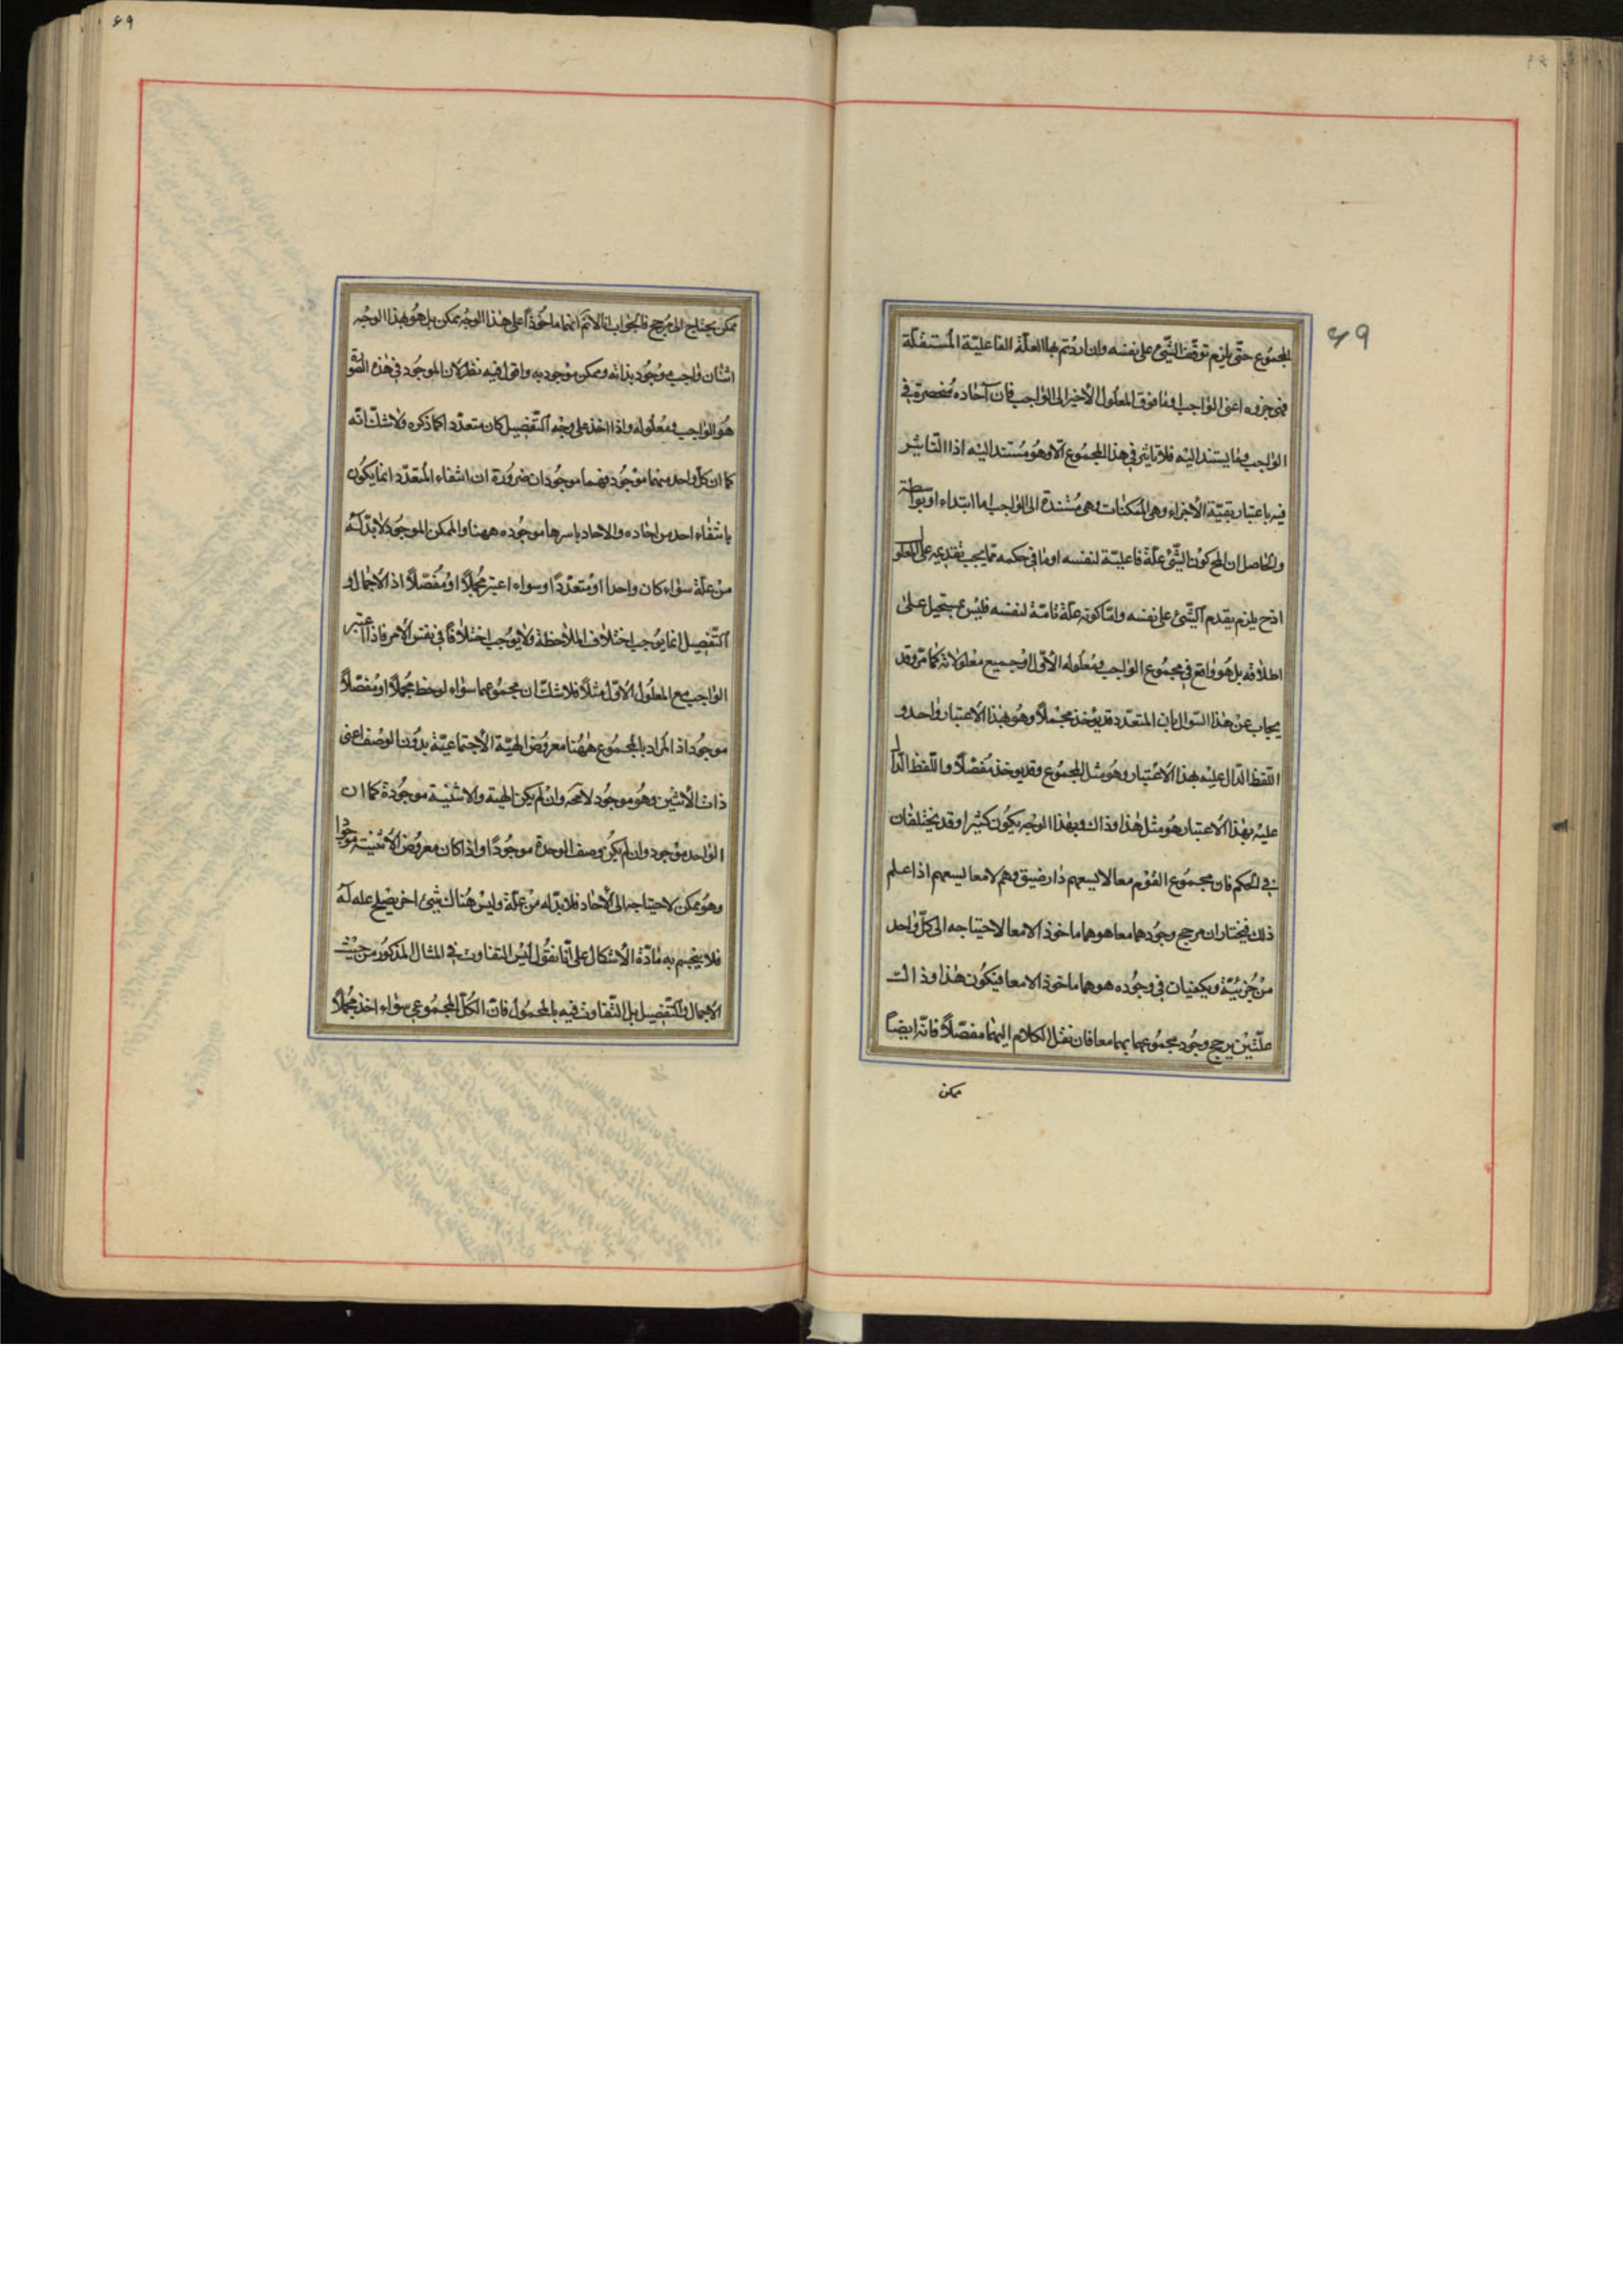 ٤٩
المجموع حتّى يلزم توقّف الشّئ على نفسه وان اردتم بها العلّة الفاعليّة المستقلّة
فهى جزوه اعنى الواجب او ما فوق المعلول الأخير الى الواجب فان آحاده منحصرة فى
الواجب وما يستند اليه فلا تاثير فى هذا المجموع الا وهو مستند اليه اذ التاثير
فيه باعتبار بقيّة الأجزاء وهى الممكنات وهى مستندة الى الواجب اما ابتداء او بواسطة
والحاصل ان المح كون الشّئ علّة فاعليّة لنفسه او ما فى حكمه مما يجب تقديمه على المعلول
اذ ح يلزم تقدم الشّئ على نفسه وامّا كونه علّة تامّة لنفسه فليس بمستحيل على
اطلاقه بل هو واقع فى مجموع الواجب ومعلوله الأوّل او جميع معلولاته كما مرّ وقد
يجاب عن هذا السّوال بان المتعدد قد يوخذ مجملاً وهو بهذا الاعتبار واحد و
اللّفظ الدّال عليه بهذا الاعتبار وهو مثل المجموع وقد يوخذ مفصّلاً واللّفظ الدّال
عليه بهذا الاعتبار هو مثل هذا وذاك وبهذا الوجه يكون كثيرا وقد يختلفان
فى الحكم فان مجموع القوم معا لا يسعهم دار ضيق وهم لا معا يسعهم اذا علم
ذلك فيختار ان مرجح وجودهما معا هو هما ماخوذا لا معا لاحتياجه الى كلّ واحد
من جزئيّة ويكفيان فى وجوده هو هما ماخوذا لا معا فيكون هذا وذاك
علّتين يرجح وجود مجموعهما بهما معا فان نقل الكلام اليهما مفصّلاً فانّه ايضاً
ممكن
٤٩
ممكن يحتاج الى مرجح فالجواب انا لانم انهما ماخوذاً على هذا الوجه ممكن بل هو بهذا الوجه
اثنان واجب موجود بذاته وممكن موجود به واقول فيه نظر لان الموجود فى هذه الصّورة
هو الواجب ومعلوله واذا اخذ على وجه التّفصيل كان متعدّدا كما ذكره ولا شكّ انّه
كما ان كلّ واحد منهما موجود فهما موجودان ضرورة ان انتفاء المتعدّد انما يكون
بانتفاء احد من احاده والاحاد باسرها موجوده ههنا والممكن الموجود لا بدّ له
من علّة سواء كان واحدا او متعدّدًا وسواء اعتبر مجملاً او مفصّلاً اذ الاجمال و
التّفصيل انما يوجب اختلاف الملاحظة ولا يوجب اختلافًا فى نفس الامر فاذا اعتبر
الواجب مع المعلول الاوّل مثلاً فلا شكّ ان مجموعهما سواء لوحظ مجملاً او مفصّلاً
موجود اذ المراد بالمجموع ههنا معروض الهيئة الاجتماعيّة بدون الوصف اعنى
ذات الاثنين وهو موجود لا محه وان لم يكن الهيئة والاثنينية موجودة كما ان
الواحد موجود وان لم يكن وصف الوحدة موجودًا واذا كان معروض الاثنينية موجودا
وهو ممكن لاحتياجه الى الاحاد فلا بدّ له من علّة وليس هناك شئ اخر يصلح علة له
فلا ينحسم به مادّة الاشكال على انّا نقول ليس التفاوت فى المثال المذكور من حيث
الاجمال والتّفصيل بل التّفاوت فيه بالمحمول فان الكلّ المجموعى سواء اخذ مجملاً